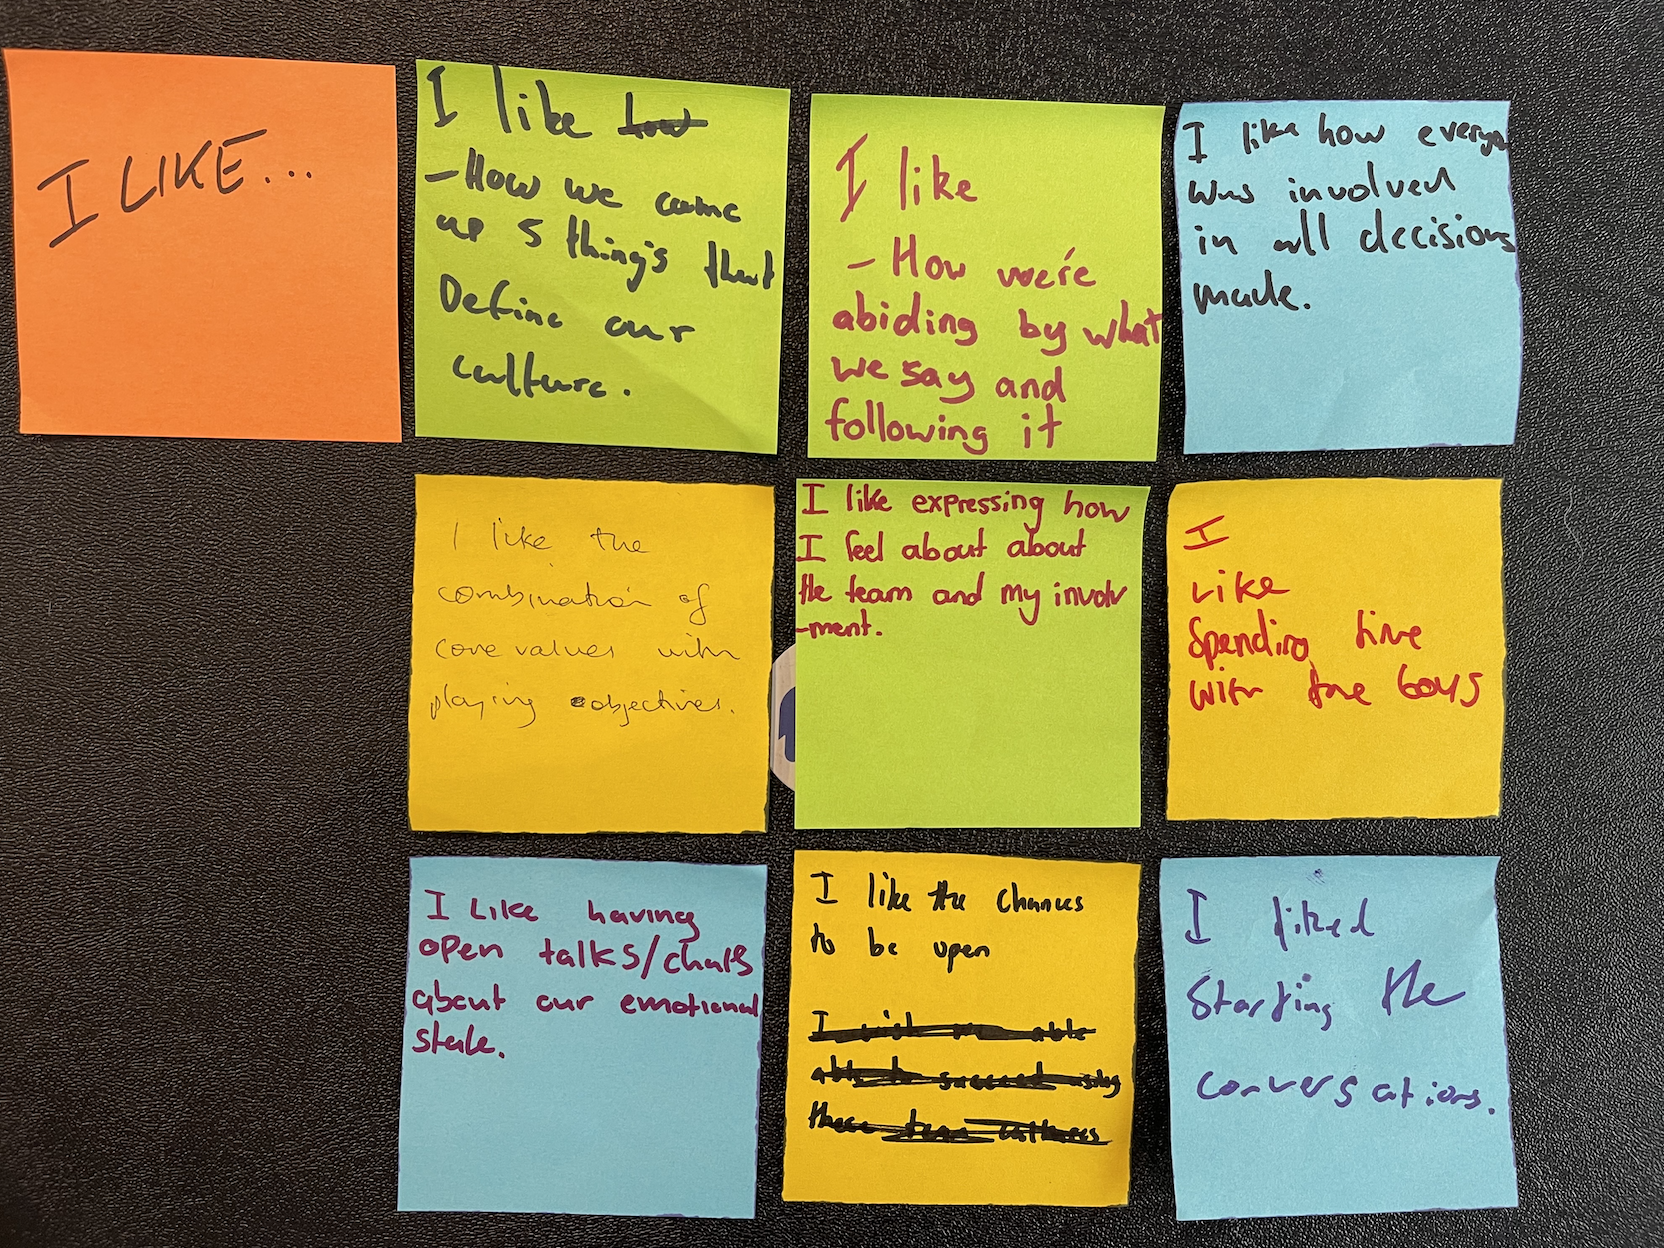 I LIKE...
I like how
- How we came
up 5 thing's that
Define our
culture.
I like
- How we're
abiding by what
we say and
following it
I like how everyon
was involved
in all decisions
made.
I like the
combination of
core values with
playing objectives.
I like expressing how
I feel about about
the team and my involv
-ment.
I
Like
Spending time
with the boys
I Like having
open talks/chats
about our emotional
state.
I like the chances
to be open
I wish
able to succeed using
these team cultures
I liked
Starting the
conversations.